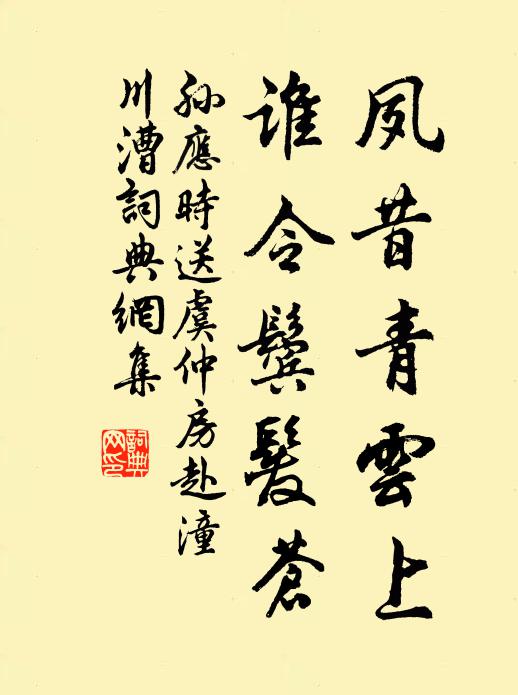 夙昔青雲上
誰令鬢髮蒼
孫應時送虞仲房赴潼
川漕詞典網集
詞典
網印